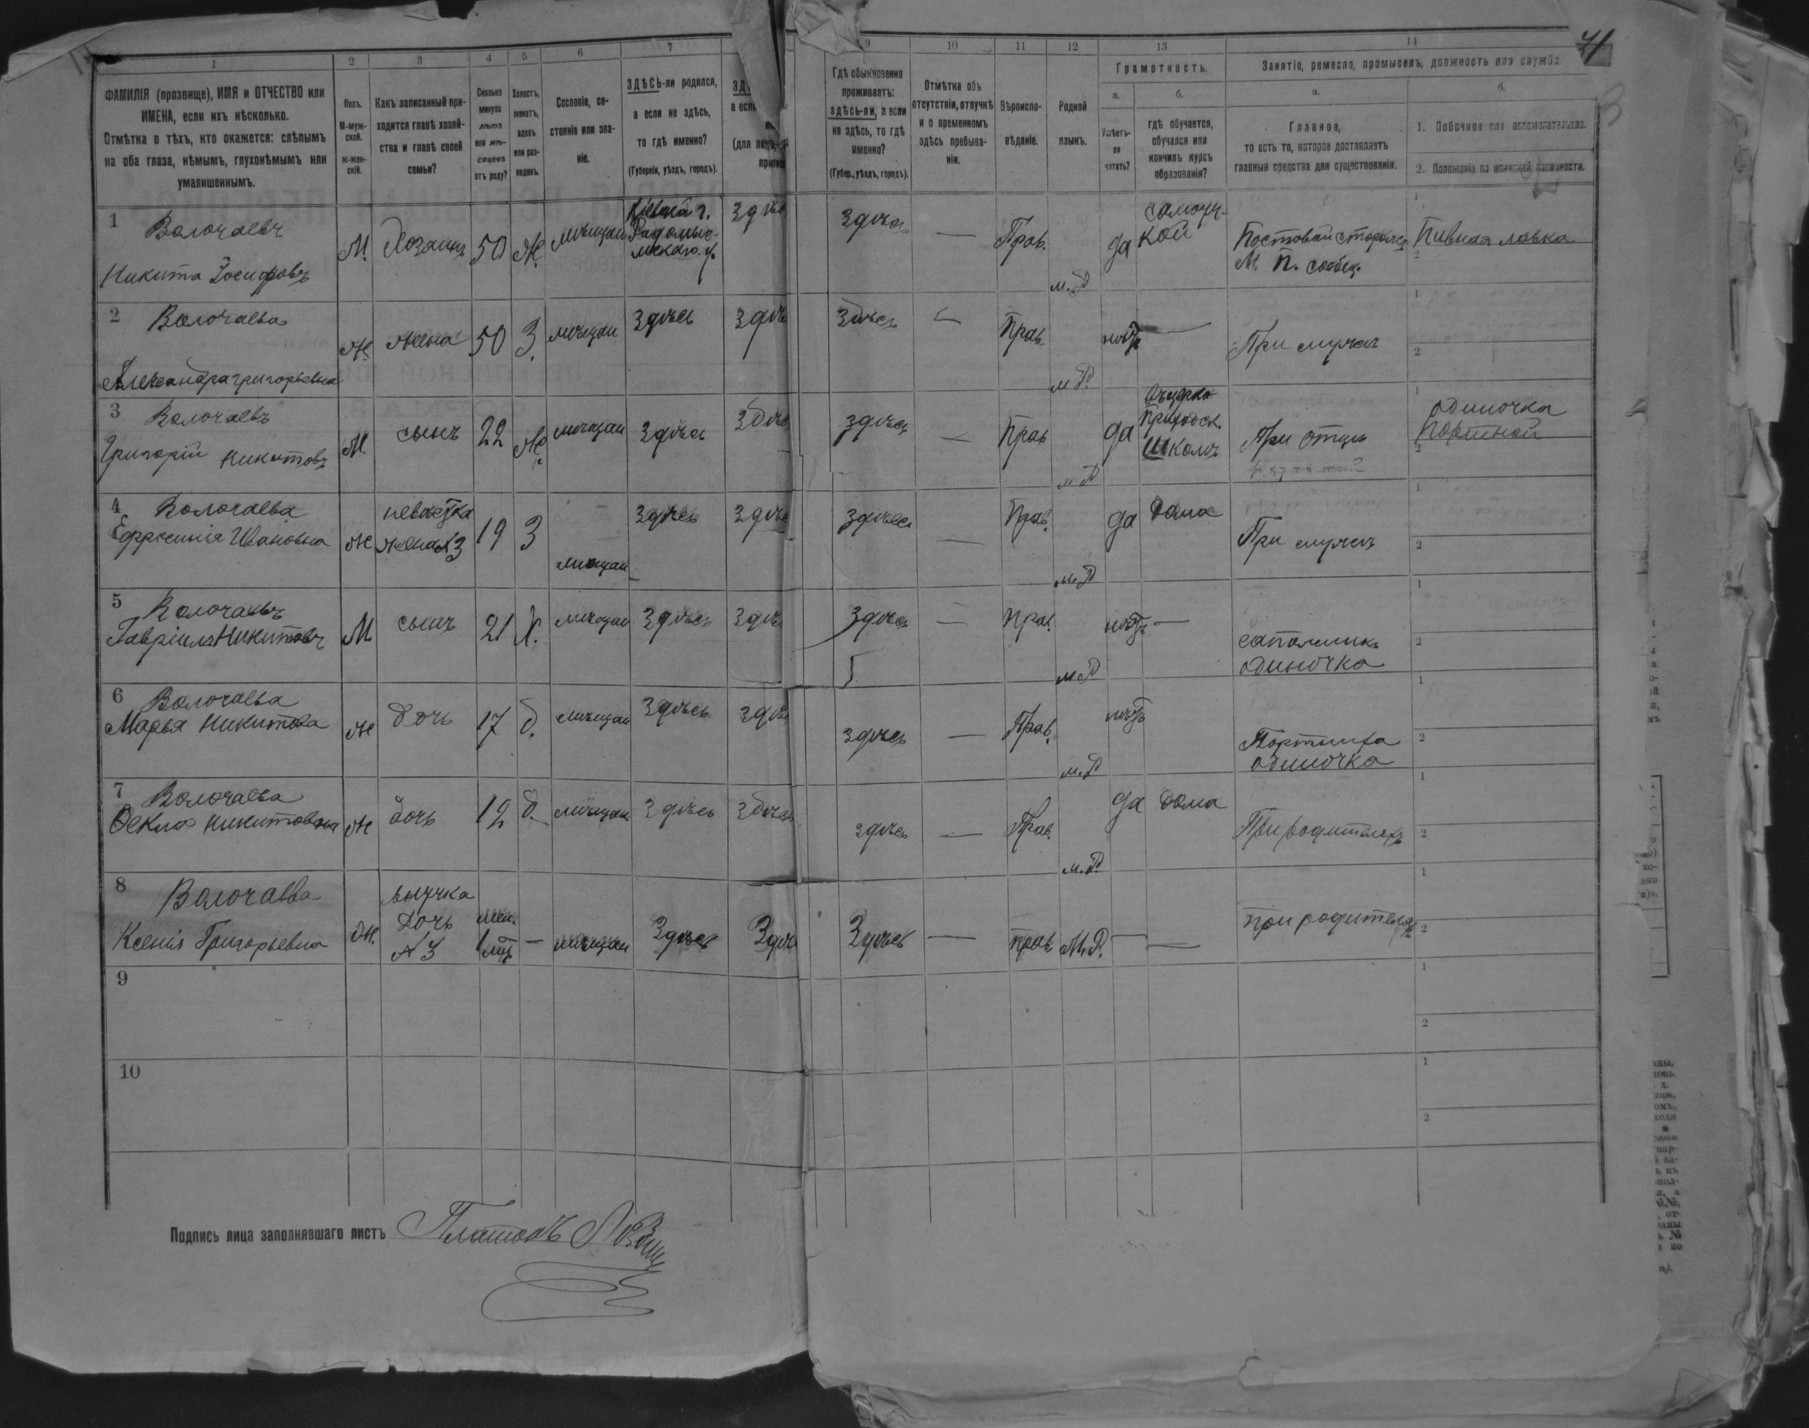 41
1 2 3 4 5 6 7 9 10 11 12 13 14
ФАМИЛІЯ (прозвище), ИМЯ и ОТЧЕСТВО или
ИМЕНА, если ихъ нѣсколько.
Отмѣтка о тѣхъ, кто окажется: слѣпымъ
на оба глаза, нѣмымъ, глухонѣмымъ или
умалишеннымъ.
Полъ.
М-муж-
ской.
Ж-жен-
скій.
Какъ записанный при-
ходится главѣ хозяй-
ства и главѣ своей
семьи?
Сколько
минуло
лѣтъ
или мѣ-
сяцевъ
отъ роду?
Холостъ,
женатъ,
вдовъ
или раз-
веденъ.
Сословіе, со-
стояніе или зва-
ніе.
ЗДѢСЬ-ли родился,
а если не здѣсь,
то гдѣ именно?
(Губернія, уѣздъ, городъ).
Гдѣ обыкновенно
проживаетъ:
здѣсь-ли, а если
не здѣсь, то гдѣ
именно?
(Губер., уѣздъ, городъ).
Отмѣтка объ
отсутствіи, отлучкѣ
и о временномъ
здѣсь пребыва-
ніи.
Вѣроиспо-
вѣданіе.
Родной
языкъ.
Грамотность.
а.
Умѣетъ-
ли
читать?
б.
гдѣ обучается,
обучался или
кончилъ курсъ
образованія?
Занятіе, ремесло, промыселъ, должность или служба.
а.
Главное,
то есть то, которое доставляетъ
главныя средства для существованія.
б.
1. Побочное или вспомогательное.
2. Положеніе по воинской повинности.
1 Волочаевъ
Никита Іосифовъ
М. Хозяинъ 50 Ж. мѣщан Кіевской г.
Радомыс-
льскаго у.
здѣсь здѣсь — Прав. м.Р да самоуч-
кой
Постовой сторожъ
М. П. сообщ.
Пивная лавка
2 Волочаева
Александра Григорьевна
Ж. жена 50 З. мѣщан здѣсь здѣсь здѣсь — Прав. м.Р. нѣтъ — При мужѣ
3 Волочаевъ
Григорій Никитовъ
М. сынъ 22 Ж. мѣщан здѣсь здѣсь здѣсь — Прав м.Р да
Приходск.
Школѣ
При отцѣ
одиночка
Портной
4 Волочаева
Ефросинія Ивановна
Ж невѣстка
жена №3 19 З мѣщан здѣсь здѣсь здѣсь — Прав. м.Р да Дома При мужѣ
5 Волочаевъ
Гавріилъ Никитовъ
М сынъ 21 Х. мѣщан здѣсь здѣсь здѣсь — Прав. м.Р нѣтъ —
сапожникъ
одиночка
6 Волочаева
Марья Никитова
Ж дочь 17 д. мѣщан здѣсь здѣсь здѣсь — Прав. м.Р нѣтъ
Портниха
одиночка
7 Волочаева
Ѳекла Никитовна
Ж дочь 12 д. мѣщан здѣсь здѣсь здѣсь — Прав. м.Р. да дома При родителяхъ
8 Волочаева
Ксенія Григорьевна
Ж. внучка
дочь
№3 — мѣщан Здѣсь Здѣсь Здѣсь — прав М.Р. — — при родителяхъ
9
10
Подпись лица заполнявшаго листъ Платонъ